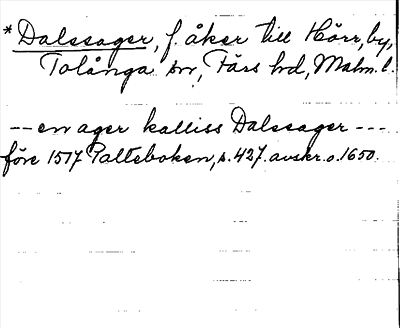 *Dalssager, f. åker till Hörr, by,
Tolånga sn, Färs hd, Malm. l.
-- en ager kalliss Dalssager ---
före 1517 Palteboken, s. 427. avskr. o. 1650.